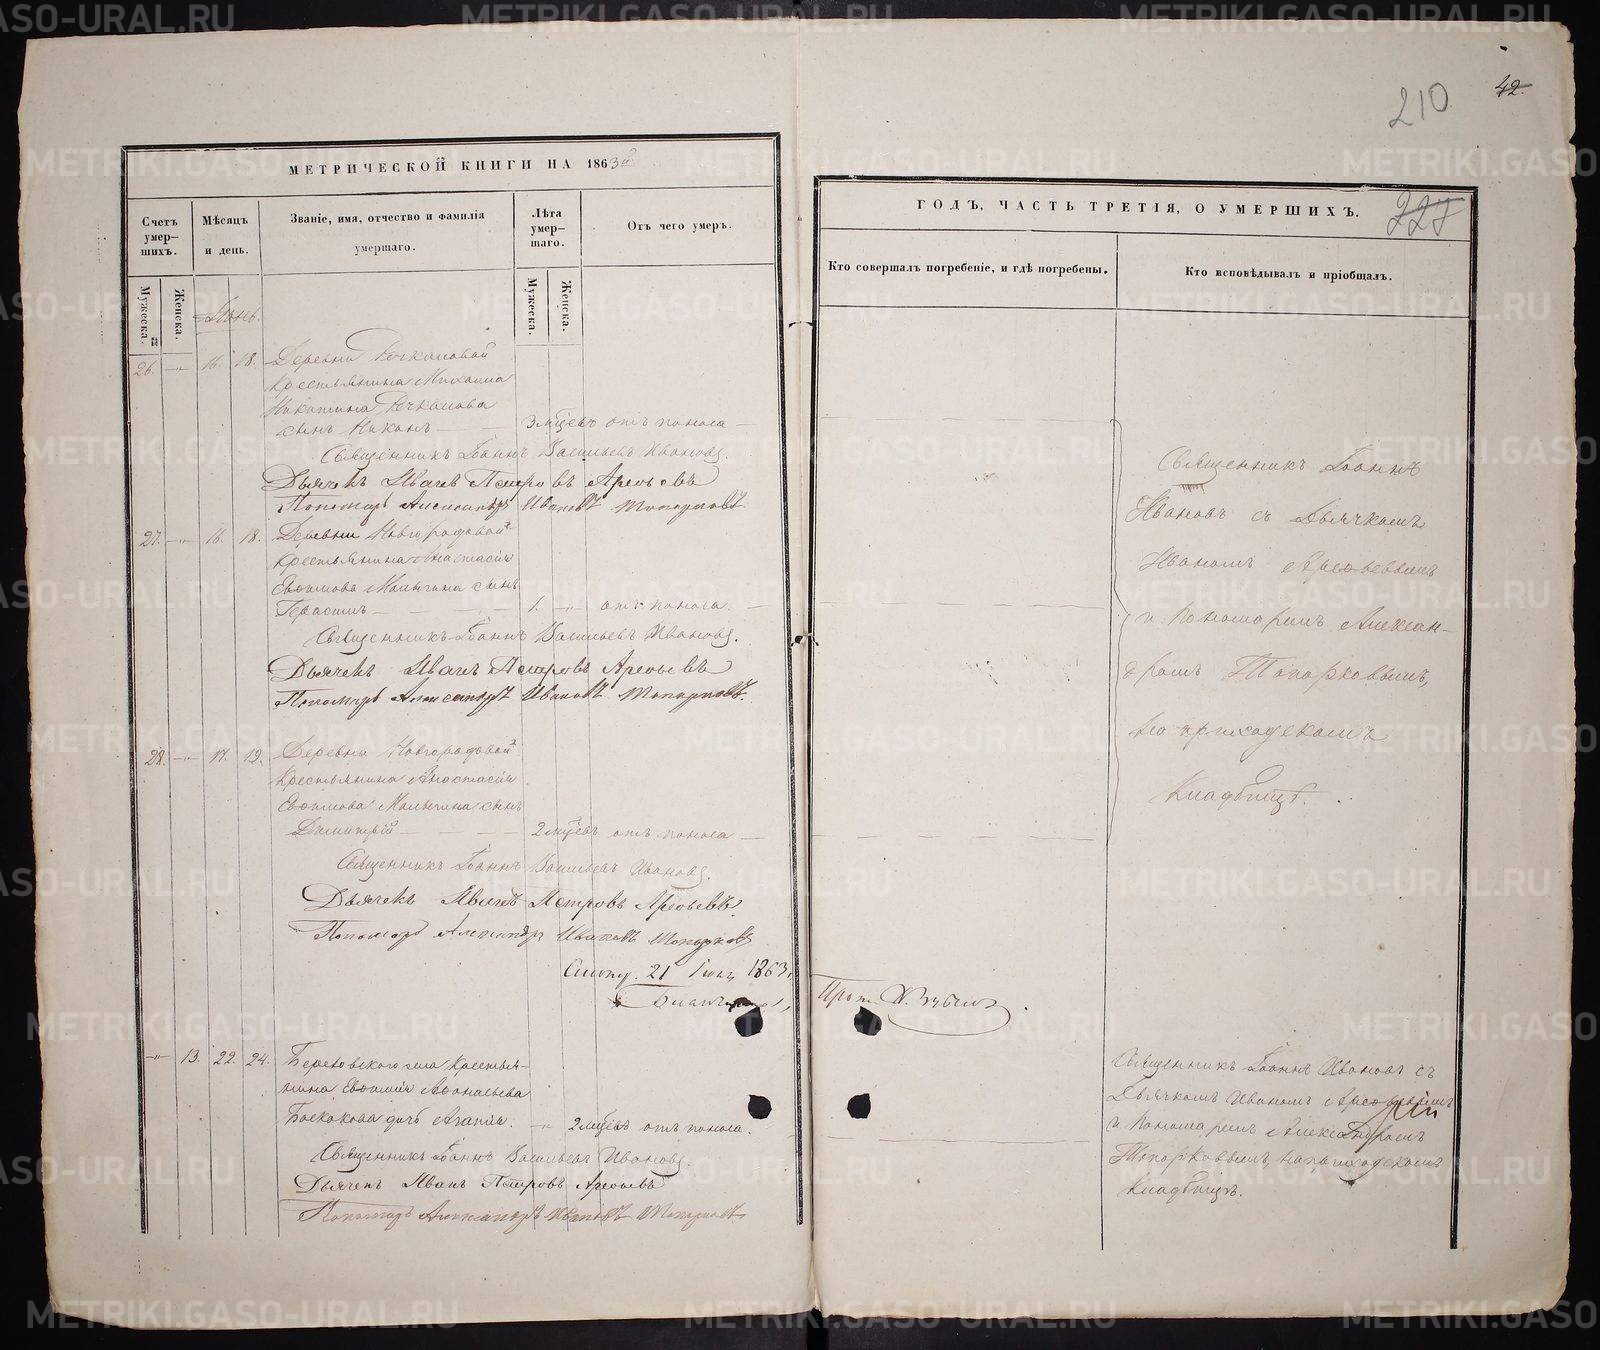 42.
210
МЕТРИЧЕСКОЙ КНИГИ НА 1863й
Счетъ умер-шихъ.
Мужеска.
Женска.
Мѣсяцъ и день.
Званіе, имя, отчество и фамилія умершаго.
Лѣта умер-шаго.
Мужеска.
Женска.
Отъ чего умеръ.
26. 16. 18. Деревни Речкаловой
Крестьянина Михаила
Никитина Речкалова
сынъ Никонъ 3 мѣсѣцъ отъ поноса
Священникъ Іоаннъ Васильевъ Ивановъ.
Дьячекъ Иванъ Петровъ Арефьевъ
Пономарь Александръ Ивановъ Топорковъ
27. 16. 18. Деревни Новгородовой
Крестьянина Анастасія
Евфимова Малыгина сынъ
Герасимъ 1. отъ поноса.
Священникъ Іоаннъ Васильевъ Ивановъ.
Дьячекъ Иванъ Петровъ Арефьевъ
Пономарь Александръ Ивановъ Топорковъ.
28. 17. 19. Деревни Новгородовой
Крестьянина Анастасія
Евфимова Малыгина сынъ
Димитрій 2 мѣсѣцъ отъ поноса
Священникъ Іоаннъ Васильевъ Ивановъ.
Дьячекъ Иванъ Петровъ Арефьевъ.
Пономарь Александръ Ивановъ Топорковъ
21 1863
13. 22. 24. Березовского села Крестья-
нина Евфимія Афонасьева
дочь Агапія. 2 мѣсѣцъ отъ поноса.
Священникъ Іоаннъ Васильевъ Ивановъ.
Дьячекъ Иванъ Петровъ Арефьевъ
Пономарь Александръ Ивановъ Топорковъ
ГОДЪ, ЧАСТЬ ТРЕТІЯ, О УМЕРШИХЪ.
227
Кто совершалъ погребеніе, и гдѣ погребены.
Кто исповѣдывалъ и пріобщалъ.
Священникъ Іоаннъ
Ивановъ съ Дьячкомъ
Иваномъ Арефьевымъ
и Пономаремъ Алексан-
дромъ Топорковымъ,
на приходскомъ
Кладбищѣ.
Священникъ Іоаннъ Ивановъ съ
Дьячкомъ Иваномъ Арефьевымъ
и Пономаремъ Александромъ
Топорковымъ, на приходскомъ
Кладбищѣ.
METRIKI.GASO-URAL.RU